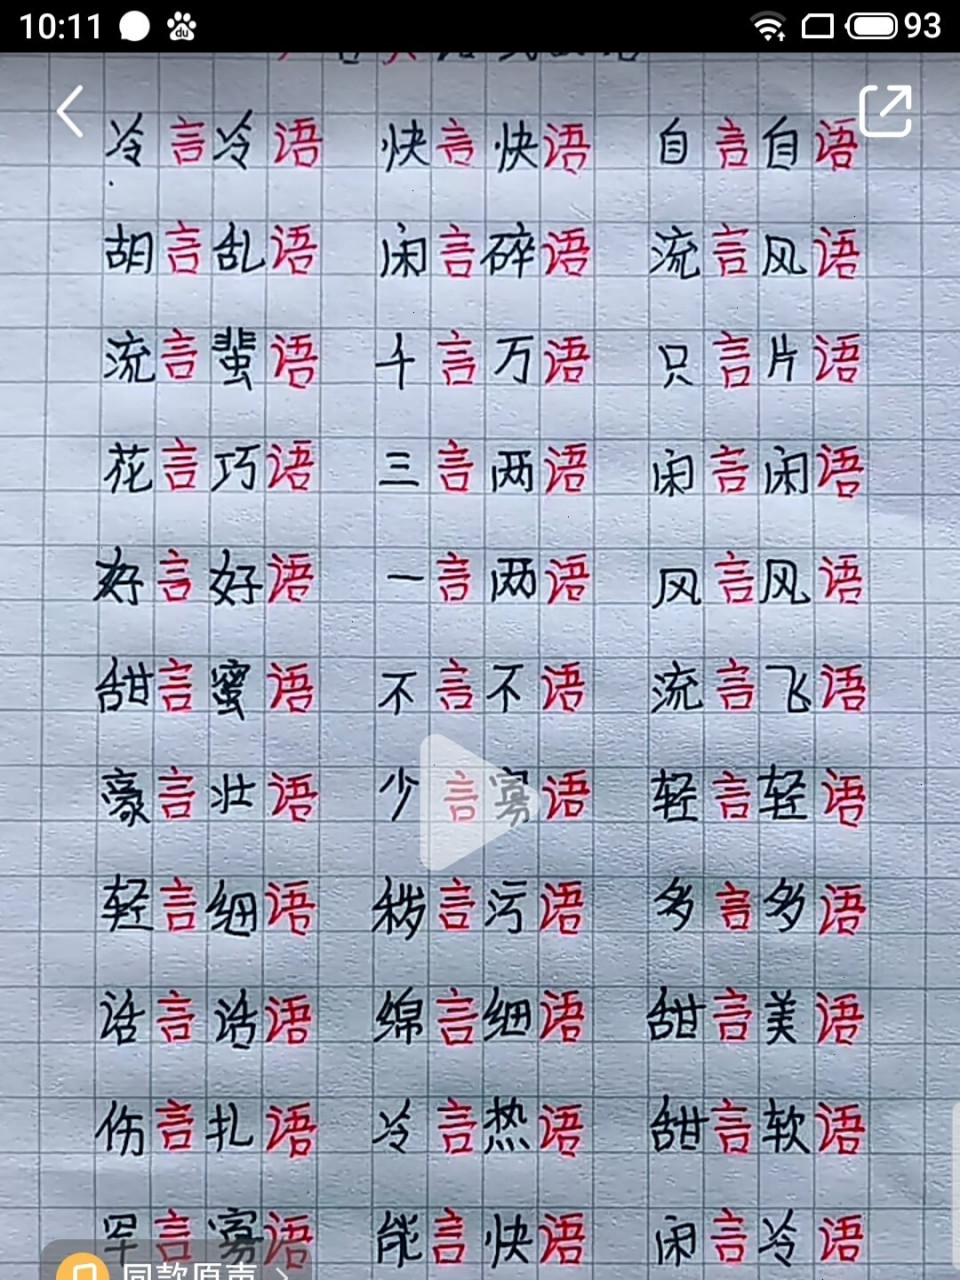 10:11 du 93
冷言冷语 快言快语 自言自语
胡言乱语 闲言碎语 流言风语
流言蜚语 千言万语 只言片语
花言巧语 三言两语 闲言闲语
好言好语 一言两语 风言风语
甜言蜜语 不言不语 流言飞语
豪言壮语 少言寡语 轻言轻语
轻言细语 秽言污语 多言多语
话言话语 绵言细语 甜言美语
伤言扎语 冷言热语 甜言软语
罕言寡语 能言快语 闲言冷语
同款原声